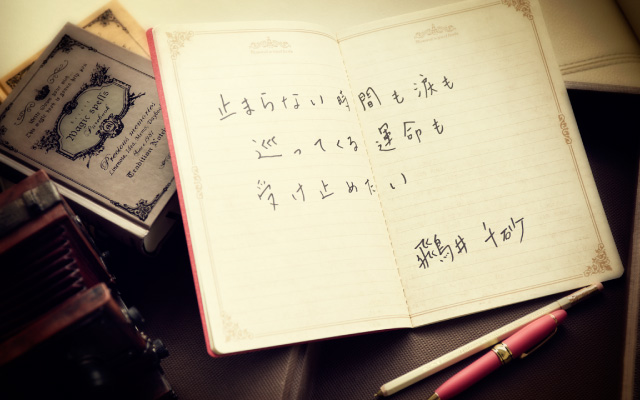 止まらない時間も涙も
巡ってくる運命も
受け止めたい
飛鳥井 千砂
Magic spells
Precious memories